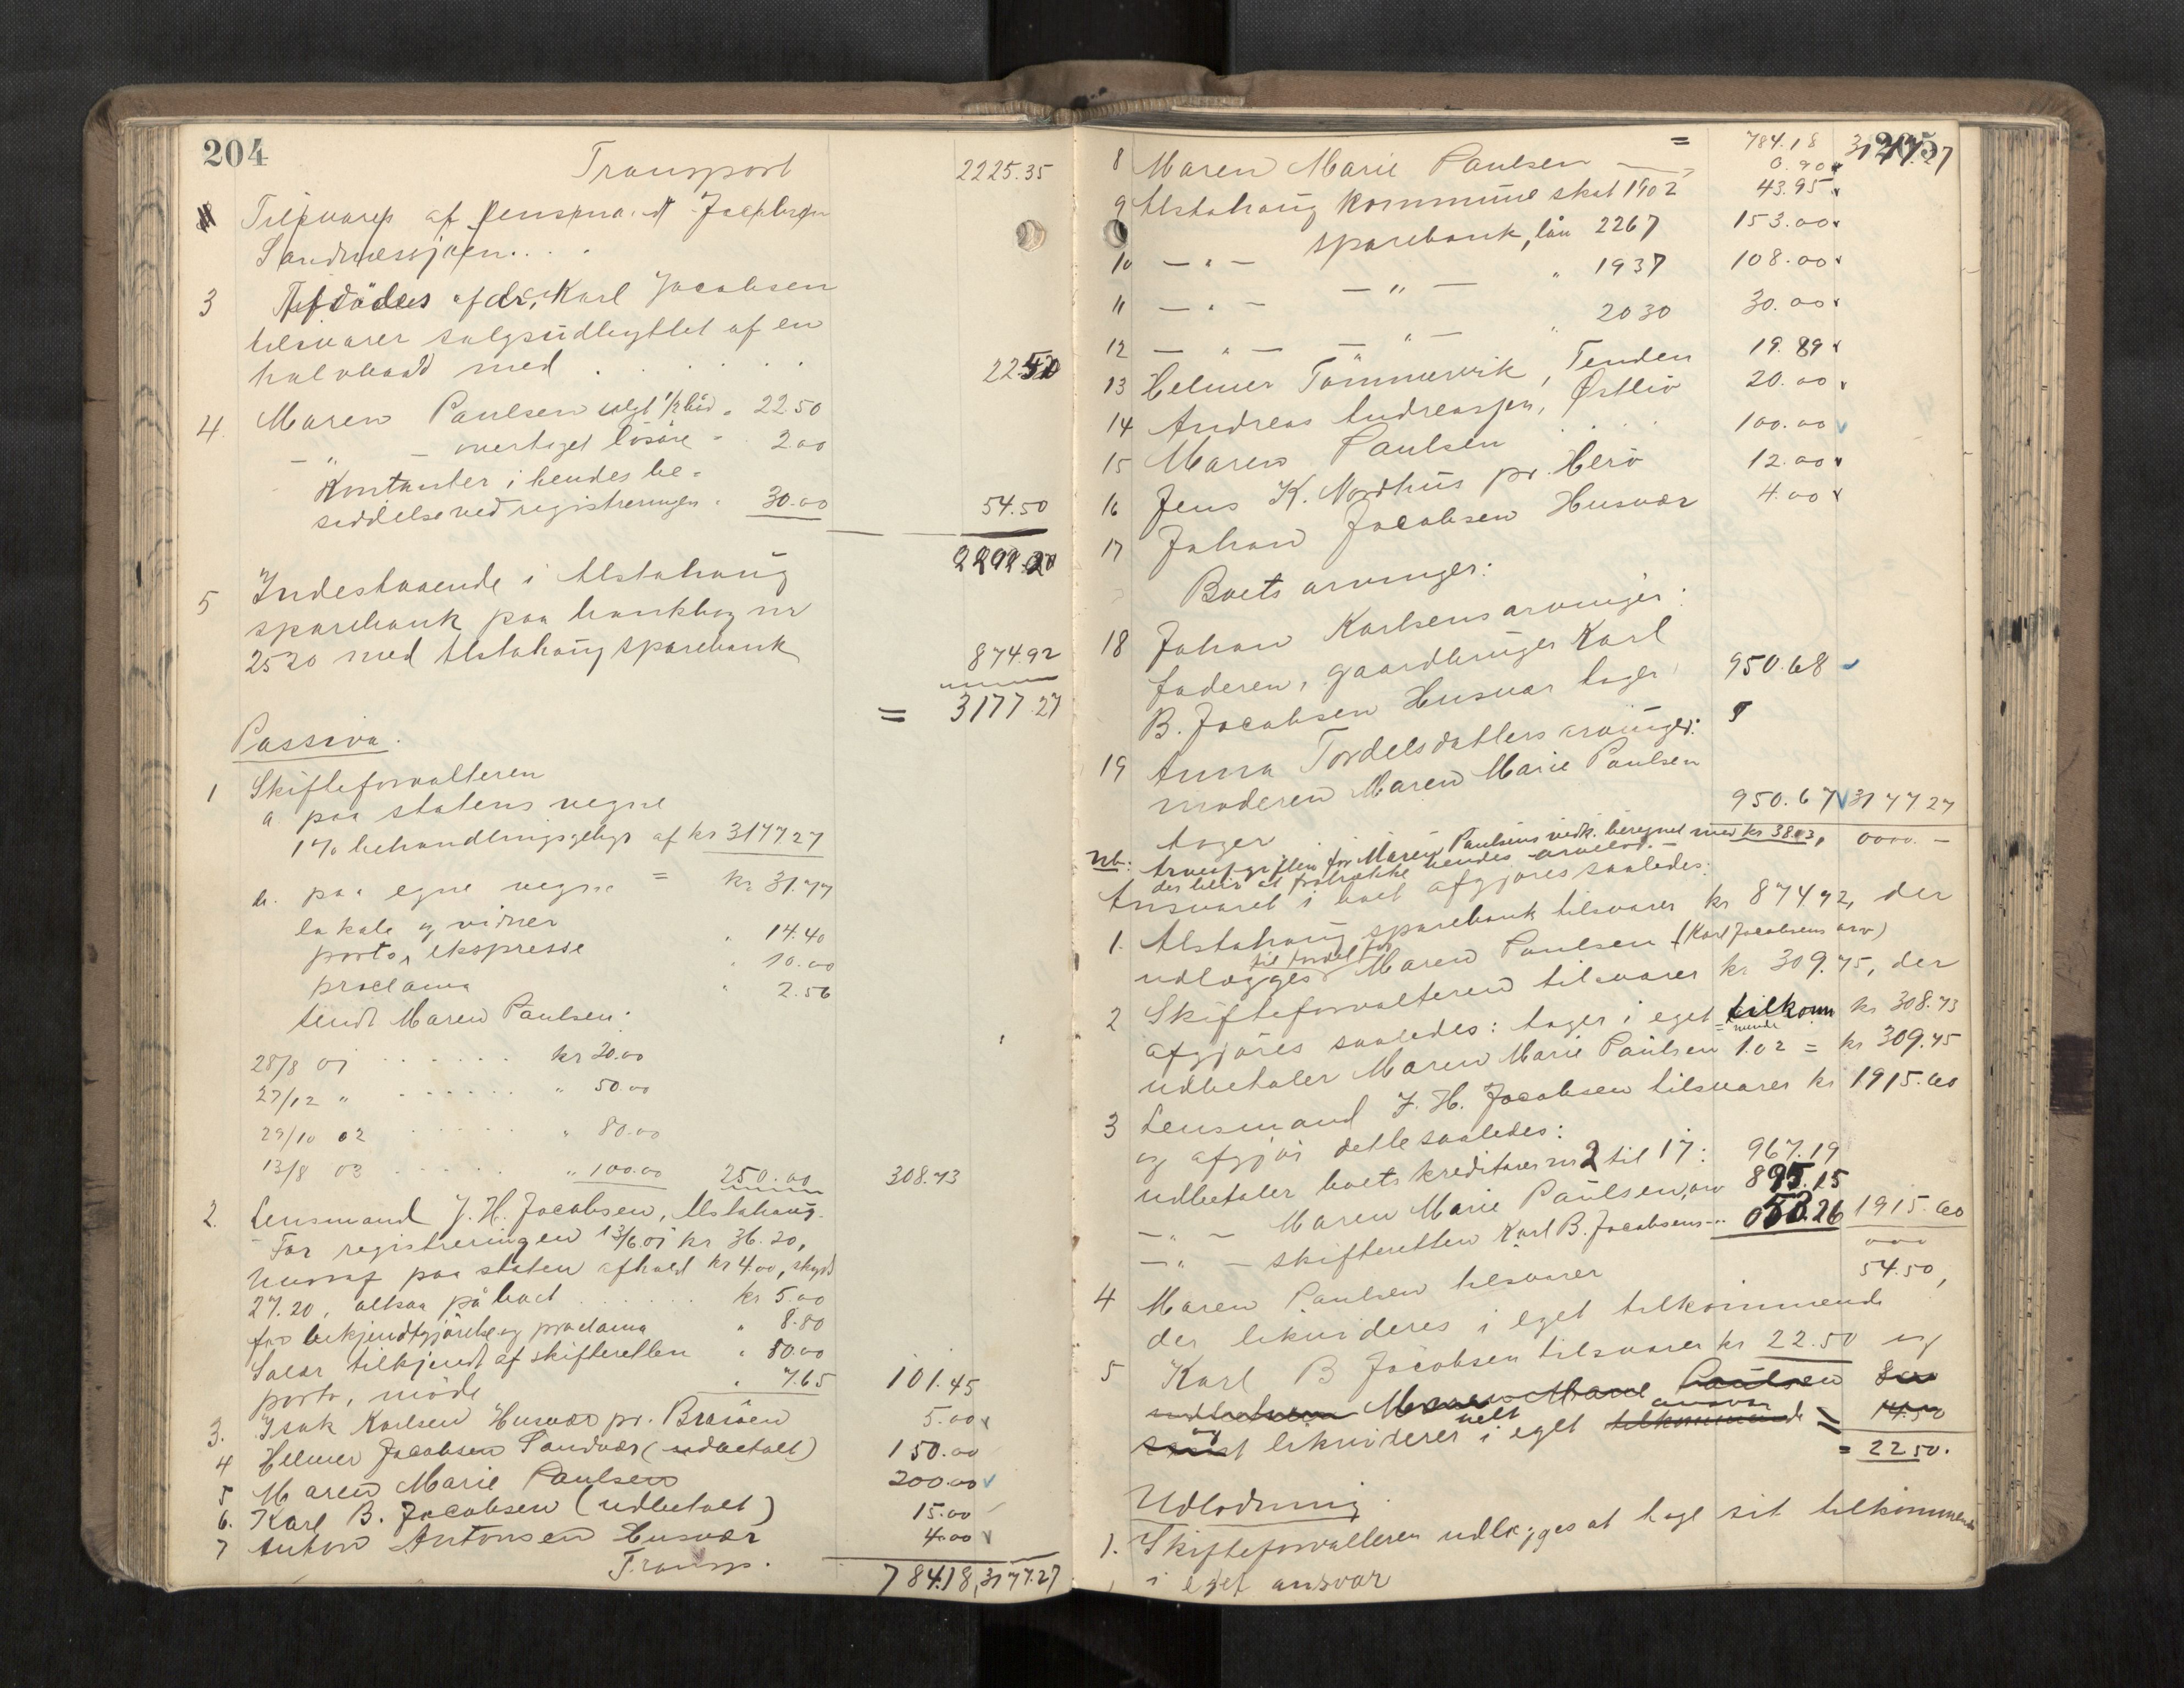 204
Transport 2225.35
Tilsvares af lensmand Jacobsen
Sandnessjøen . . .
3 Afdødes fader, Karl Jacobsen
tilsvarer salgsudbyttet af en
halvbaad med . . . . . . 22.50
4. Maren Paulsen solgt 1/2 båd " 22.50
— " — overtaget løsøre " 2.00
Kontanter i hendes be-
siddelse ved registreringen " 30.00 54.50
5 Indestaaende i Alstahoug
sparebank paa bankbog nr
2520 med Alstahoug sparebank 874.92
= 3177.27
Passiva.
1 Skifteforvalteren
a paa statens vegne
1% behandlingsgebyr af kr 3177 27
= kr 31.77
b. paa egne vegne
lokale og vidner " 14.40
porto, ekspresse " 10.00
proclama " 2.56
sendt Maren Paulsen:
28/8 01 . . . . . . kr 20.00
27/12 " . . . . . . " 50.00
29/10 02 . . . . . " 80.00
13/8 03 . . . . . " 100.00 250.00 308.73
2. Lensmand J. H. Jacobsen, Alstahoug.
For registreringen 13/6.01 kr 36.20,
hvoraf paa staten afholdt kr 4.00, skyds
27.20, altsaa på boet . . . . . . kr 5.00
for bekjendtgjørelse og proclama " 8.80
Salær tilkjendt af skifteretten " 80.00
porto, møde " 7.65 101.45
3. Isak Karlsen Husvær pr. Brasøen 5.00
4 Helmer Jacobsen Sandvær (udbetalt) 150.00
5 Maren Marie Paulsen 200.00
6. Karl B. Jacobsen (udbetalt) 15.00
7 Anton Antonsen Husvær 4.00
Transp. 784.18, 3177.27
205
= 784.18 3177.27
8 Maren Marie Paulsen — 0.90
9 Alstahoug kommune skat 1902 43.95
10 — " — sparebank, lån 2267 153.00
11 — " — — " — " 1937 108.00
12 — " — — " — " 2030 30.00
13 Helmer Tømmervik, Tenden 19.89
14 Andreas Andreassen, Østbø 20.00
15 Maren Paulsen . . . . 100.00
16 Jens K. Nordhus pr. Herø 12.00
17 Johan Jacobsen Husvær 4.00
Boets arvinger:
18 Johan Karlsens arvinger:
faderen, gaardbruger Karl
B. Jacobsen Husvær tager 950.68
19 Anna Tordelsdatters arvinger:
moderen Maren Marie Paulsen
tager 950.67 3177 27
Nb: Arveafgiften for Maren Paulsens vedk. beregnet med kr 38.03, 0000.—
der blir at fratrække hendes arvelod.—
Ansvaret i boet afgjøres saaledes:
1. Alstahoug sparebank tilsvarer kr 874 92, der
udlægges til fordel for Maren Paulsen (Karl Jacobsens arv)
2 Skifteforvalteren tilsvarer kr 309.75, der
afgjøres saaledes: tager i eget tilkommende kr 308.73
udbetaler Maren Marie Paulsen 1.02 = kr 309.75
3 Lensmand J. H. Jacobsen tilsvarer kr 1915.60
og afgjør dette saaledes:
udbetaler boets kreditorer nr 2 til 17: 967.19
— " — Maren Marie Paulsen, arv 895.15
— " — skifteretten Karl B. Jacobsens — " 053.26 1915.60
000
4 Maren Paulsen tilsvarer 54.50,
der likvideres i eget tilkommende
5 Karl B Jacobsen tilsvarer kr 22.50 og
udbetaler Maren Marie Paulsen 8.00
og likviderer helt i eget tilkommende ansvar = 14.50
= 22 50.
Udlodning.
1. Skifteforvalteren udlægges at tage sit tilkommende
i eget ansvar